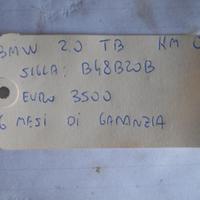 BMW 2.0 TB KM 0
SIGLA: B48B20B
EURO 3500
6 MESI DI GARANZIA